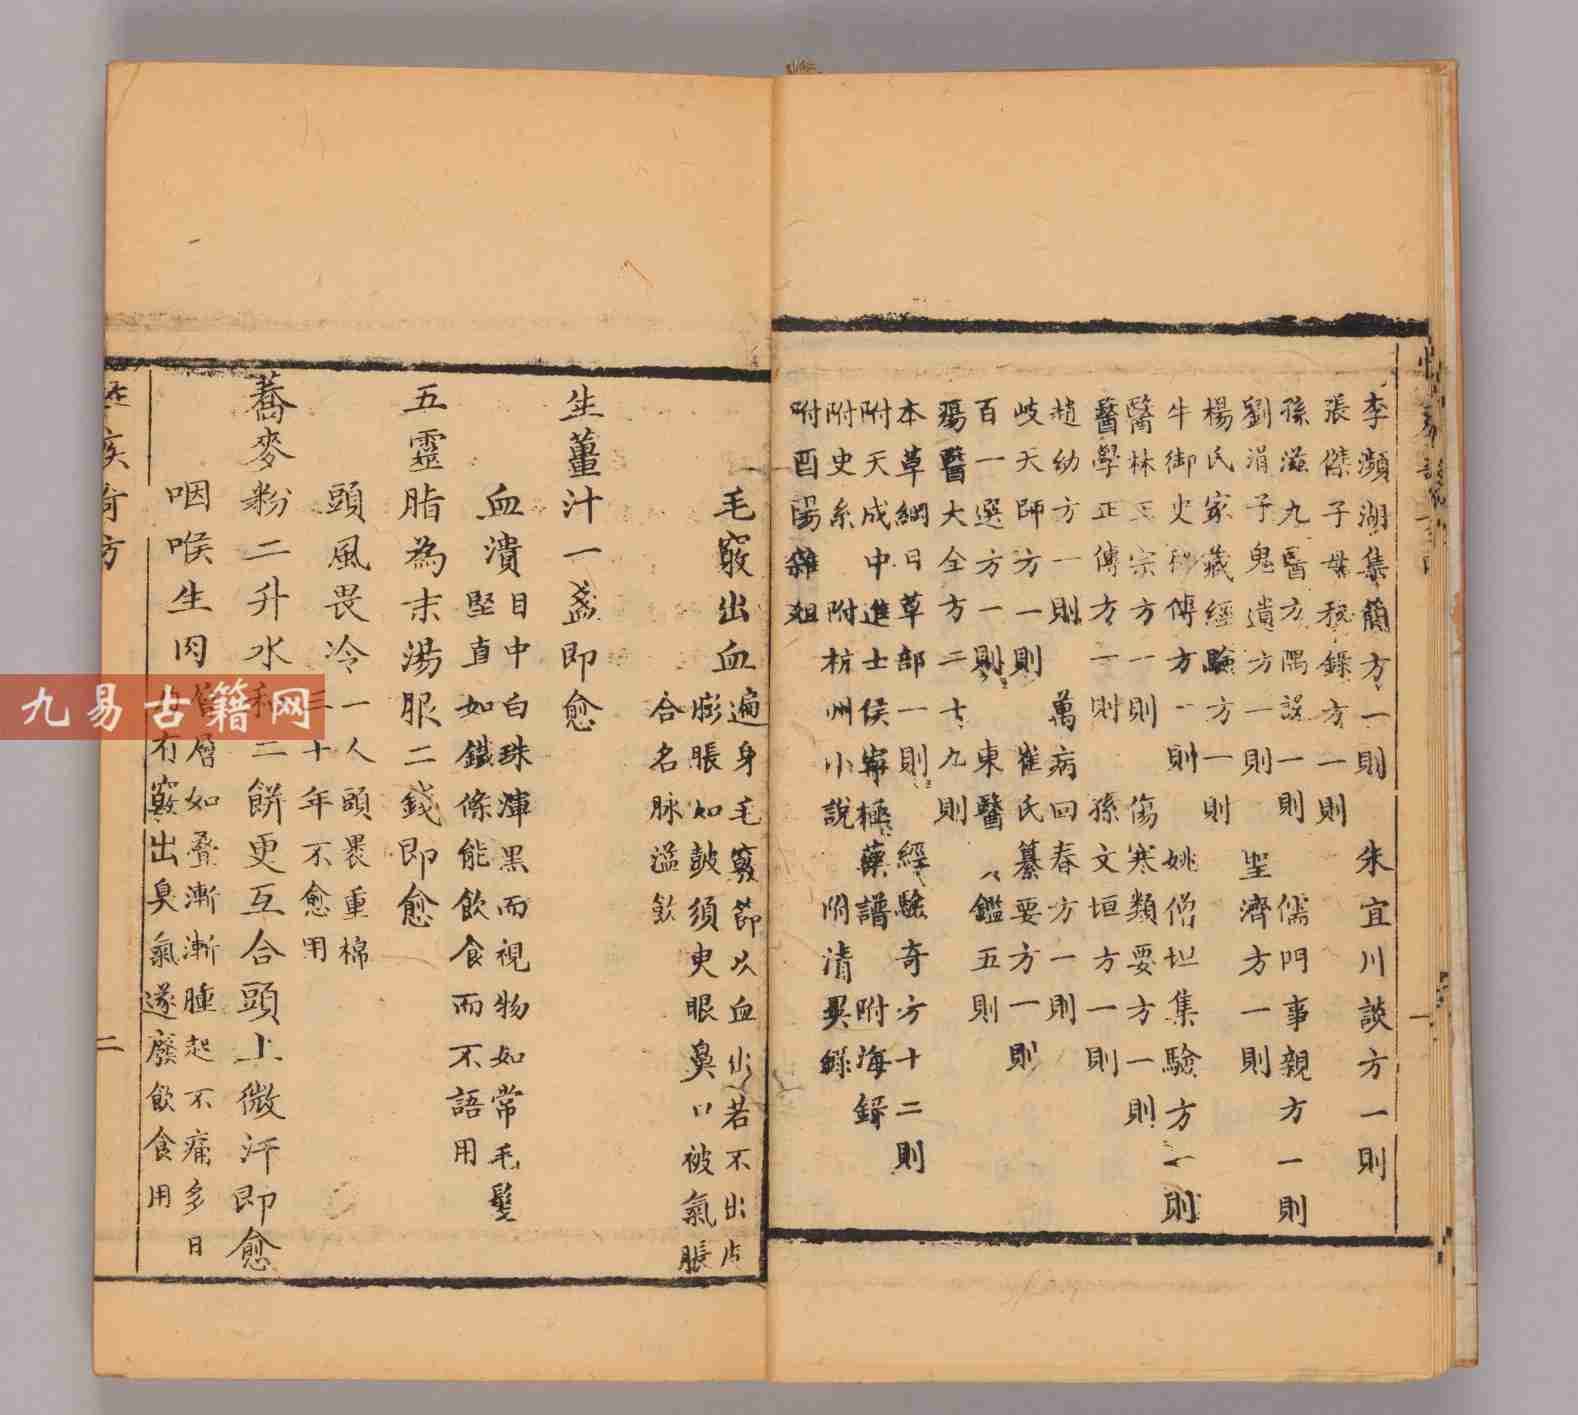 李瀕湖集簡方一則 朱宜川談方一則
張傑子母秘錄方一則
孫滋九醫方隅誤一則 儒門事親方一則
劉涓子鬼遺方一則 聖濟方一則
楊氏家藏經驗方一則
牛御史秘傳方一則 姚僧坦集驗方一則
醫林正宗方一則 傷寒類要方一則
醫學正傳方一則 孫文垣方一則
趙幼方一則 萬病回春方一則
岐天師方一則 崔氏纂要方一則
百一選方一則 東醫鑑五則
瘍醫大全方二十九則
本草綱目草部一則 經驗奇方十二則
附天成中進士侯寧極藥譜 附海錄
附史系 附杭州小說 附清異錄
附酉陽雜俎
毛竅出血 遍身毛竅節以血出若不出皮
膨脹如鼓須臾眼鼻口被氣脹
合名脉溢飲
生薑汁一盞即愈
血潰 目中白珠渾黑而視物如常毛髮
堅直如鐵條能飲食而不語用
五靈脂為末湯服二錢即愈
頭風畏冷 一人頭畏重棉
三十年不愈用
蕎麥粉二升水和二餅更互合頭上微汗即愈
咽喉生肉 層層如疊漸漸腫起不痛多日
有竅出臭氣遂廢飲食用
疾奇方
二
九易古籍网